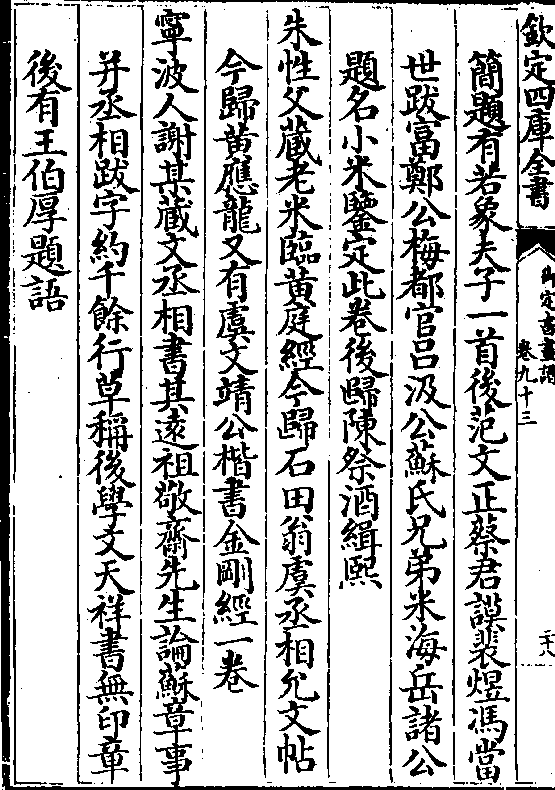 欽定四庫全書
御定書畫譜
卷九十三
二十八
簡題有若象夫子一首後范文正蔡君謨裴煜馮當
世跋富鄭公梅都官呂汲公蘇氏兄弟米海岳諸公
題名小米鑒定此卷後歸陳祭酒緝熙
朱性父藏老米臨黄庭經今歸石田翁虞丞相允文帖
今歸黄應龍又有虞文靖公楷書金剛經一卷
寧波人謝某藏文丞相書其遠祖敬齋先生論蘇章事
并丞相跋字約千餘行草稱後學文天祥書無印章
後有王伯厚題語